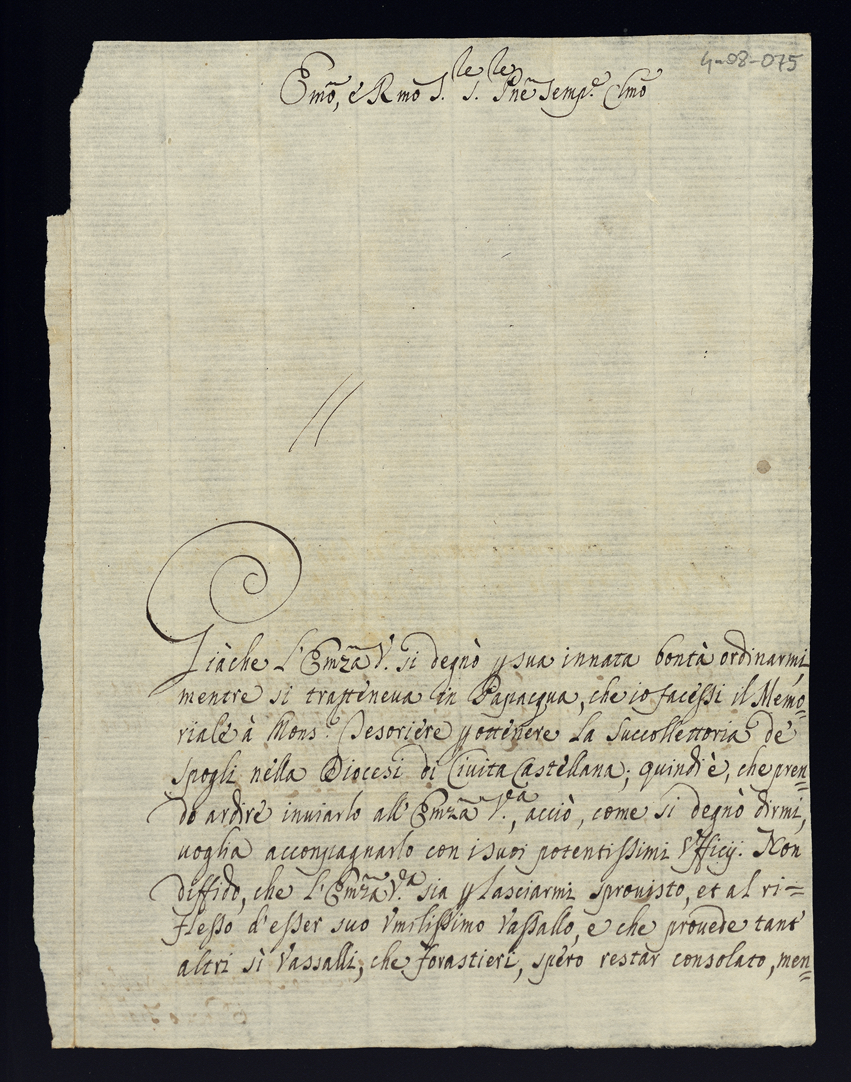 4-08-075
Emõ, è Rmõ S.le S.le Pñe Semp.e Clmõ
Giàche l'Emz̃a V. si degnò p sua innata bontà ordinarmi,
mentre si tratteneva in Papacqua, che io facessi il Memo=
riale à Mons.r Tesoriere p ottenere la Succollettoria de
spogli nella Diocesi di Civita Castellana; quindi è, che pren=
do ardire inviarlo all'Emz̃a V.ra, acciò, come si degnò dirmi,
voglia accompagnarlo con i suoi potentissimi Vfficij. Non
diffido, che l'Emz̃a V.ra sia p lasciarmi sprouisto, et al ri=
flesso d'esser suo Vmilissimo Vassallo, e che prouede tant'
altri sì Vassalli, che forastieri, spero restar consolato, men=